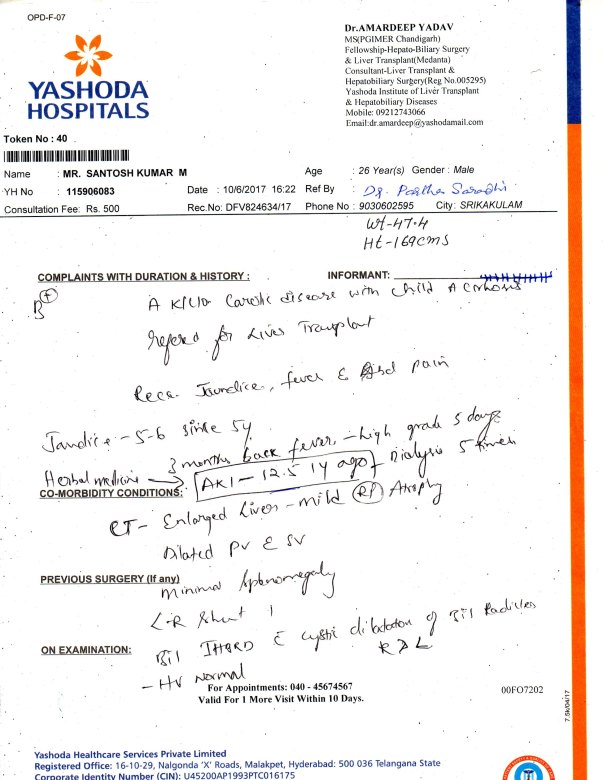 OPD-F-07
YASHODA
HOSPITALS
Dr.AMARDEEP YADAV
MS(PGIMER Chandigarh)
Fellowship-Hepato-Biliary Surgery
& Liver Transplant(Medanta)
Consultant-Liver Transplant &
Hepatobiliary Surgery(Reg No.005295)
Yashoda Institute of Liver Transplant
& Hepatobiliary Diseases
Mobile: 09212743066
Email:dr.amardeep@yashodamail.com
Token No : 40
Name : MR. SANTOSH KUMAR M Age : 26 Year(s) Gender : Male
YH No : 115906083 Date : 10/6/2017 16:22 Ref By : Dr. Partha Saradhi
Consultation Fee: Rs. 500 Rec.No: DFV824634/17 Phone No : 9030602595 City: SRIKAKULAM
Wt-47.4
Ht-169cms
COMPLAINTS WITH DURATION & HISTORY : INFORMANT:
B+
A K/C/o disease with Child A
Refered for Liver Transplant
Jaundice, fever & Abd pain
Jandice - 5-6 since 5y
3 months back fever, - high grade 5 days
Herbal medicine → AKI - 12.5 1y ago Dialysis 5 times
CO-MORBIDITY CONDITIONS:
CT - Enlarged Liver - mild Atrophy
Dilated PV & SV
PREVIOUS SURGERY (If any)
minimal
L-R Shunt
ON EXAMINATION:
Bil IHBRD cystic dilatation of Bil Radicles
R & L
- HV normal
For Appointments: 040 - 45674567
Valid For 1 More Visit Within 10 Days.
00FO7202
7.5k/04/17
Yashoda Healthcare Services Private Limited
Registered Office: 16-10-29, Nalgonda 'X' Roads, Malakpet, Hyderabad: 500 036 Telangana State
Corporate Identity Number (CIN): U45200AP1993PTC016175